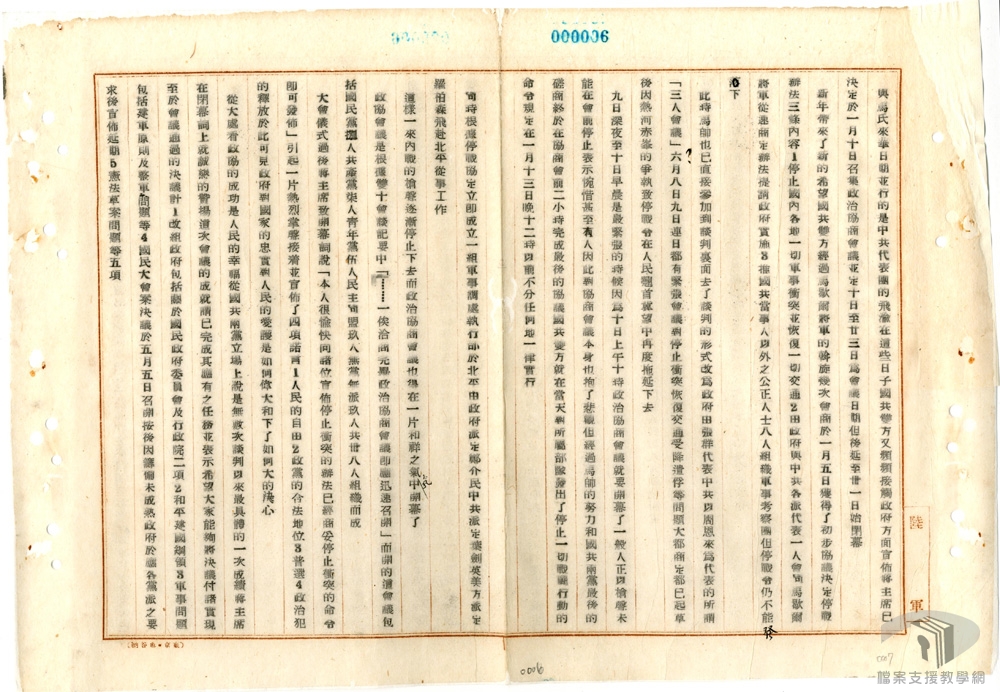 000006
與馬氏來華日期並行的是中共代表團的飛渝在這些日子國共雙方又頻頻接觸政府方面宣佈蔣主席已
決定於一月十日召集政治協商會議並定十日至廿三日為會議日期但後延至卅一日始閉幕
新年帶來了新的希望國共雙方經過馬歇爾將軍的斡旋幾次會商於一月五日獲得了初步協議決定停戰
辦法三條內容1停止國內各地一切軍事衝突並恢復一切交通2由政府與中共各派代表一人會同馬歇爾
將軍從速商定辦法提請政府實施3推國共當事人以外之公正人士八人組織軍事考察團但停戰令仍不能發
下
此時馬帥也已直接參加到談判裏面去了談判的形式改為政府由張群代表中共以周恩來為代表的所謂
「三人會議」六月八日九日連日都有緊張會議對停止衝突恢復交通受降遣俘等問題大都商定都已起草
後因熱河赤峯的爭執致停戰令在人民翹首冀望中再度拖延下去
九日深夜至十日早晨是最緊張的時候因為十日上午十時政治協商會議就要開幕了一般人正以槍聲未
能在會前停止表示惋惜甚至有人因此對協商會議本身也抱了悲觀但經過馬帥的努力和國共兩黨最後的
磋商終於在協商會前二小時完成最後的協議國共雙方就在當天對所屬部隊發出了停止一切戰鬥行動的
命令規定在一月十三日晚十二時以前不分任何地一律實行
同時根據停戰協定立即成立一組軍事調處執行部於北平由政府派定鄭介民中共派定葉劍英美方派定
羅伯森飛赴北平從事工作
這樣一來內戰的槍聲逐漸停止下去而政治協商會議也得在一片和祥之氣中開幕了
政協會議是根據雙十會談記要中「……一俟洽商完畢政治協商會議即應迅速召開」而開的這會議包
括國民黨捌人共產黨柒人青年黨伍人民主同盟玖人無黨無派玖人共卅八人組織而成
大會儀式過後蔣主席致開幕詞說「本人很愉快向諸位宣佈停止衝突的辦法已經商妥停止衝突的命令
即可發佈」引起一片熱烈掌聲接着並宣佈了四項諾言1人民的自由2政黨的合法地位3普選4政治犯
的釋放於此可見政府對國家的忠實對人民的愛護是如何偉大和下了如何大的決心
從大處看政協的成功是人民的幸福從國共兩黨立場上說是無數次談判以來最具體的一次成績蔣主席
在閉幕詞上就誠懇的贊揚這次會議的成就謂已完成其應有之任務並表示希望大家能夠將決議付諸實現
至於會議通過的決議計1改組政府包括關於國民政府委員會及行政院二項2和平建國綱領3軍事問題
包括建軍原則及整軍問題等4國民大會案決議於五月五日召開接後因籌備未成熟政府於應各黨派之要
求後宣佈延期5憲法草案問題等五項
陸
軍
0006
0007
檔案支援教學網